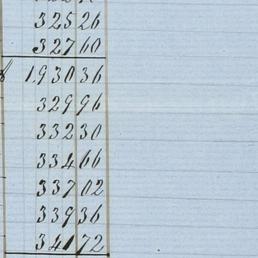 325 26
327 60
1930 36
329 96
332 30
334 66
337 02
339 36
341 72